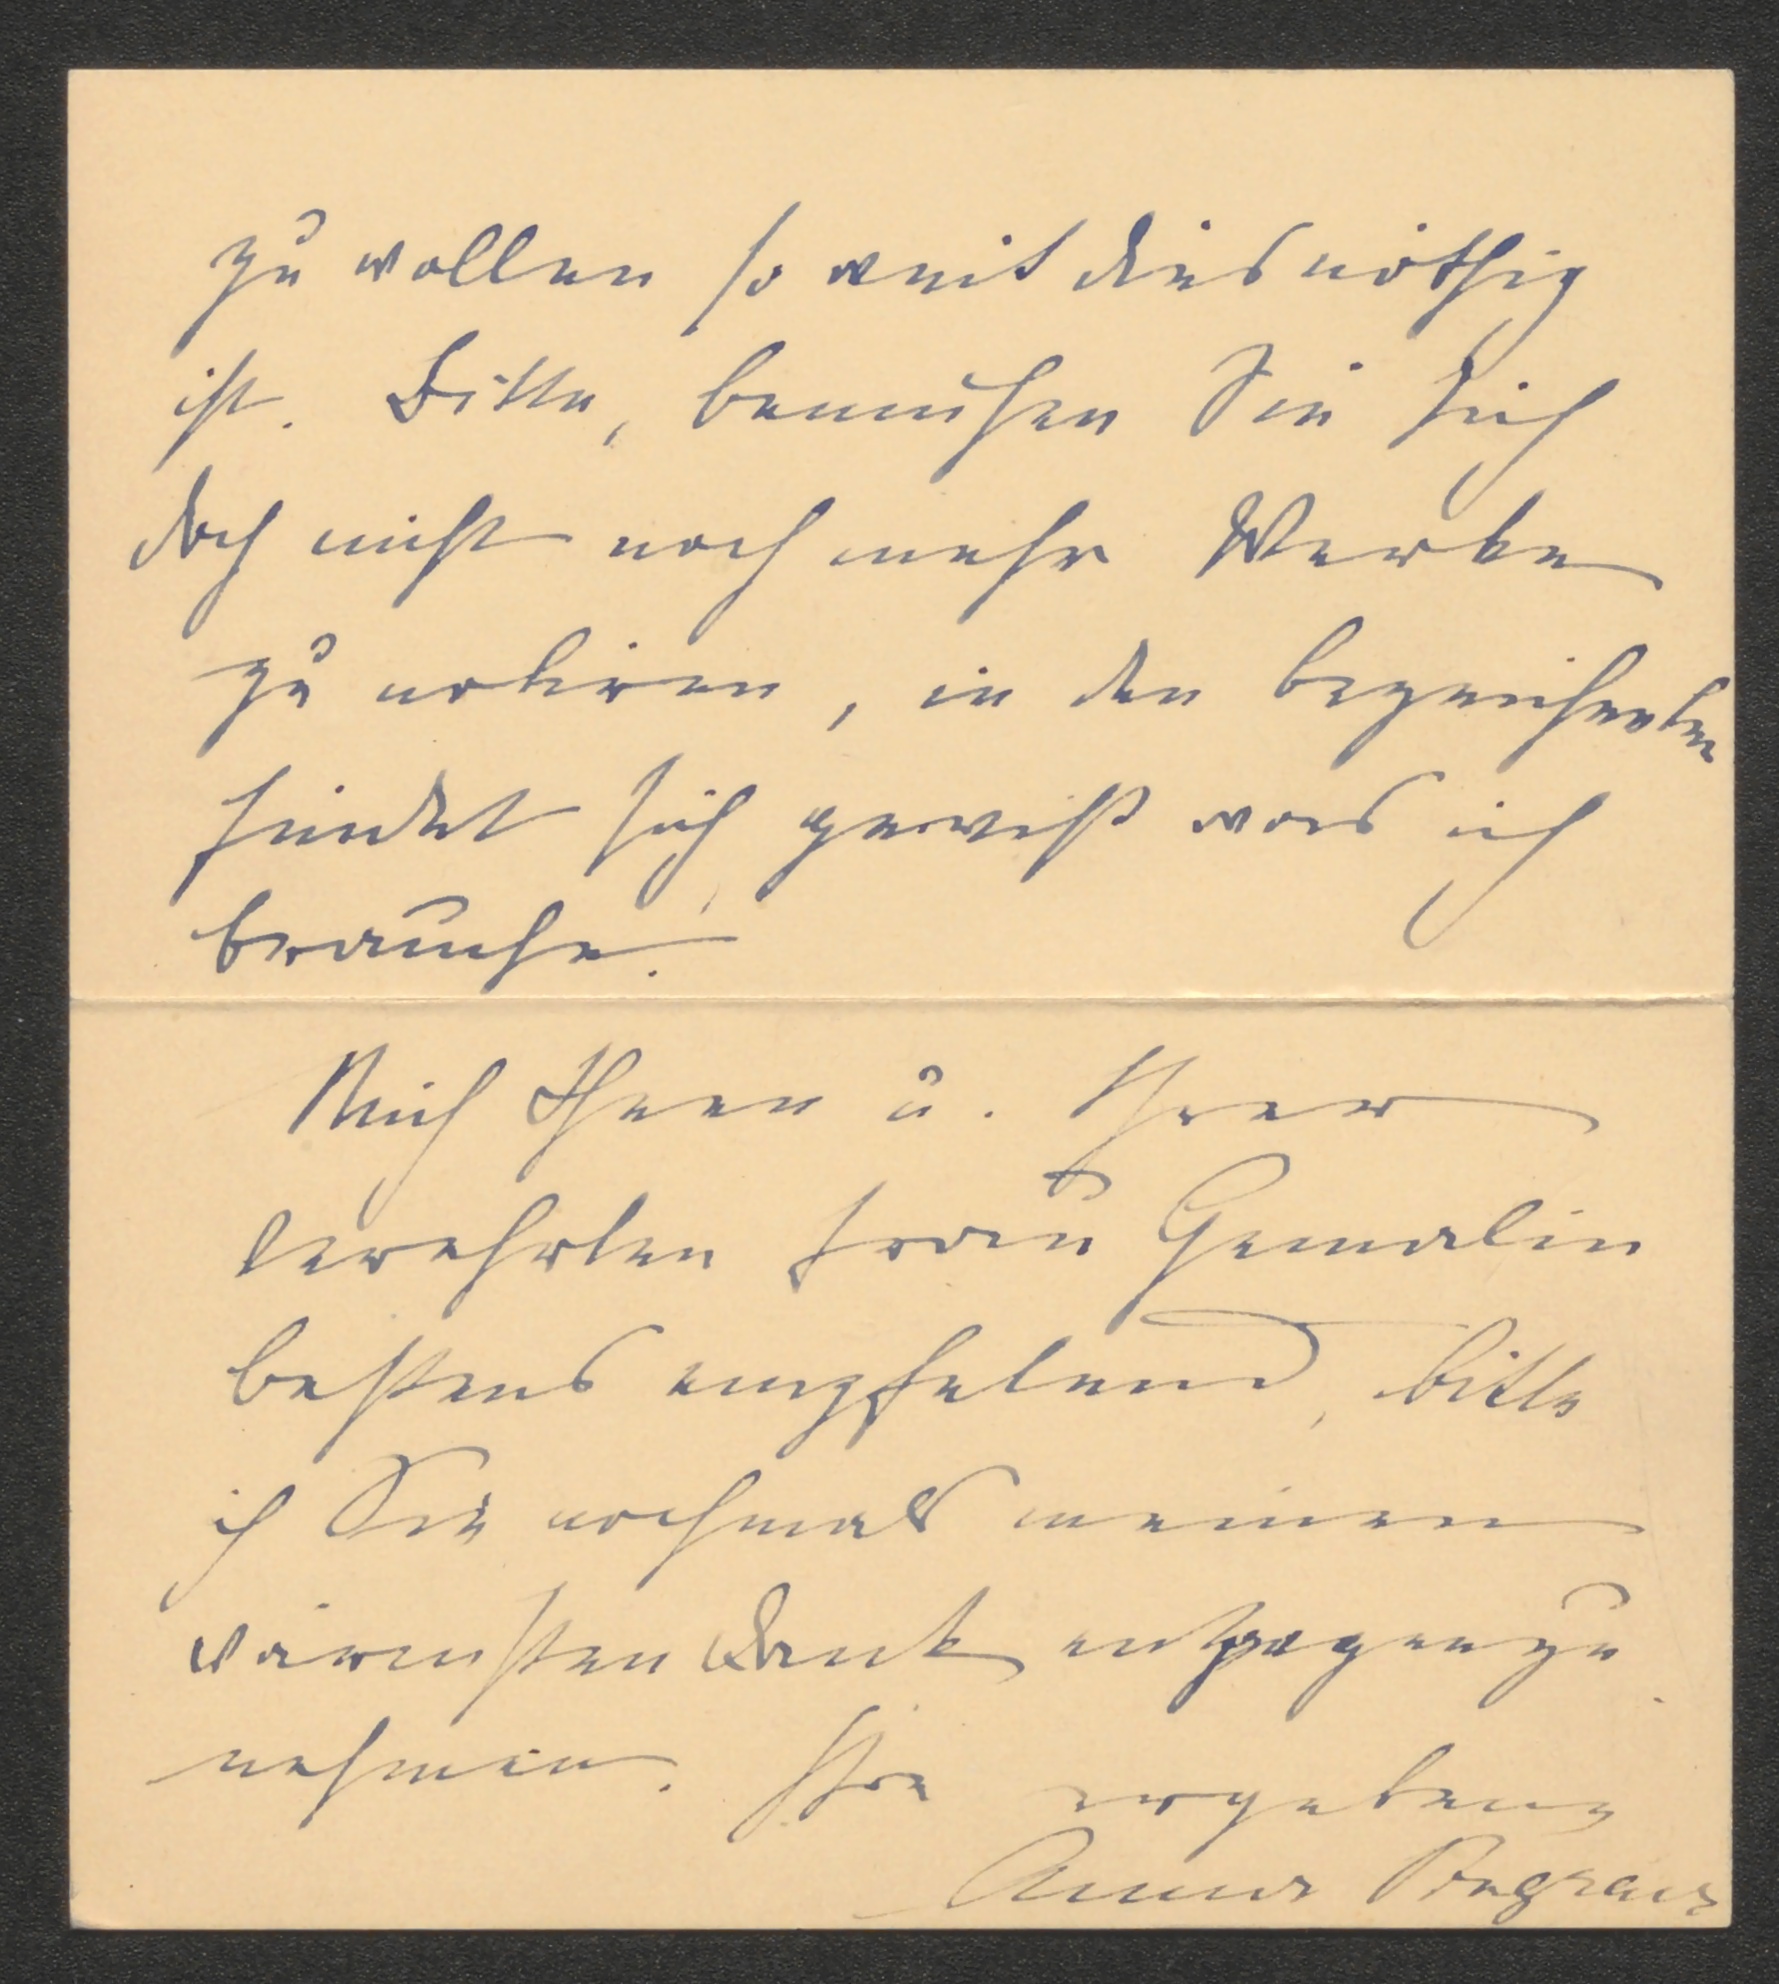 zu wollen so weit dies nöthig
ist. Bitte, bemühen Sie sich
doch nicht noch mehr Werke
zu notiren, in den bezeichneten
findet sich gewiß was ich
brauche.
Mich Ihnen u. Ihrer
verehrten Frau Gemalin
bestens empfelend, bitte
ich Sie nochmals meinen
wärmsten Dank entgegenzu
nehmen. Ihre ergebene
Anna